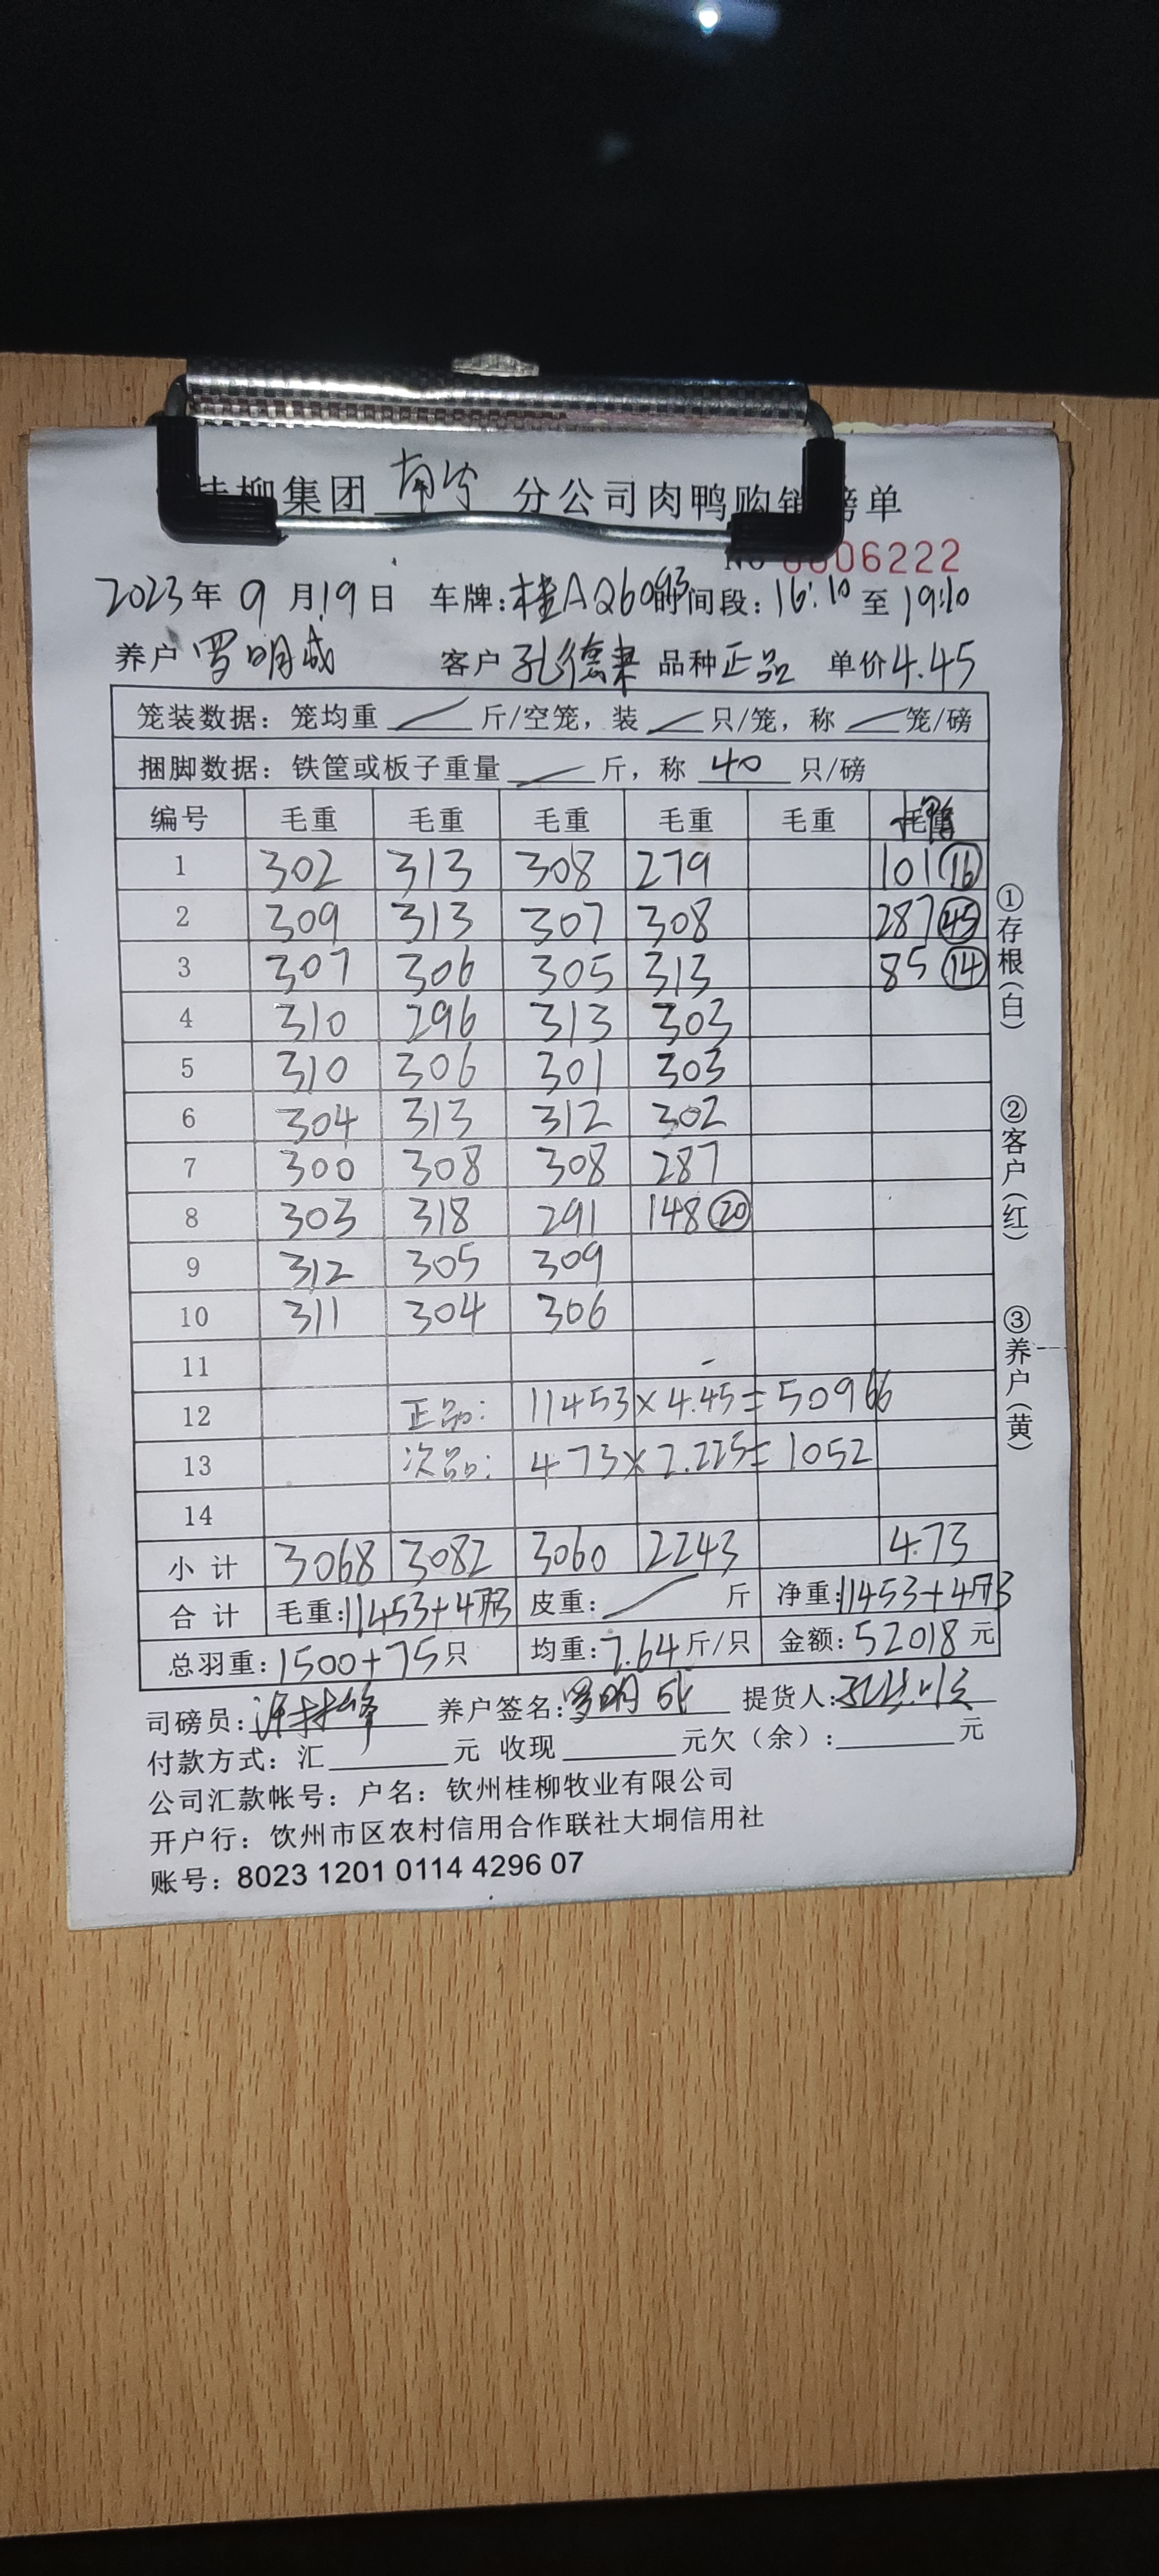 桂柳集团 南宁 分公司肉鸭购销磅单
No 0006222
2023年 9月19日 车牌:桂AQ6093 时间段:16:10至19:10
养户 罗明成 客户 孔德 品种 正品 单价 4.45
笼装数据: 笼均重 / 斤/空笼, 装 / 只/笼, 称 / 笼/磅
捆脚数据: 铁筐或板子重量 / 斤, 称 40 只/磅
编号 毛重 毛重 毛重 毛重 毛重 毛重
1 302 313 308 279 101 (16)
2 309 313 307 308 287 (45)
3 307 306 305 313 85 (14)
4 310 296 313 303
5 310 306 301 303
6 304 313 312 302
7 300 308 308 287
8 303 318 291 148 (20)
9 312 305 309
10 311 304 306
11
12 正品: 11453×4.45=50966
13 次品: 473×2.225=1052
14
小计 3068 3082 3060 2243 473
合计 毛重:11453+473斤 皮重: / 斤 净重:11453+473斤
总羽重:1500+75只 均重:7.64斤/只 金额:52018元
司磅员: 养户签名:罗明成 提货人:
付款方式: 汇 元 收现 元欠(余): 元
公司汇款帐号: 户名: 钦州桂柳牧业有限公司
开户行: 饮州市区农村信用合作联社大垌信用社
账号: 8023 1201 0114 4296 07
①存根(白)
②客户(红)
③养户(黄)